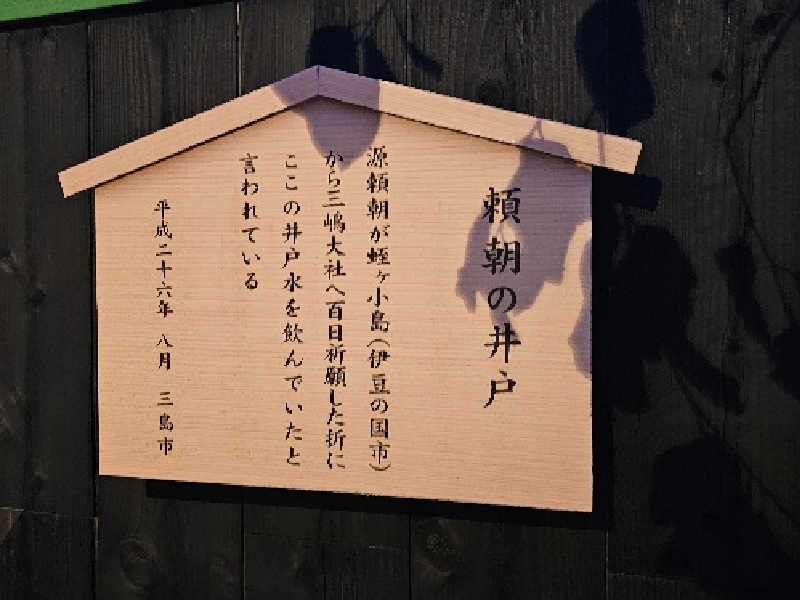 頼朝の井戸
源頼朝が蛭ヶ小島(伊豆の国市)
から三嶋大社へ百日祈願した折に
ここの井戸水を飲んでいたと
言われている
平成二十六年 八月 三島市